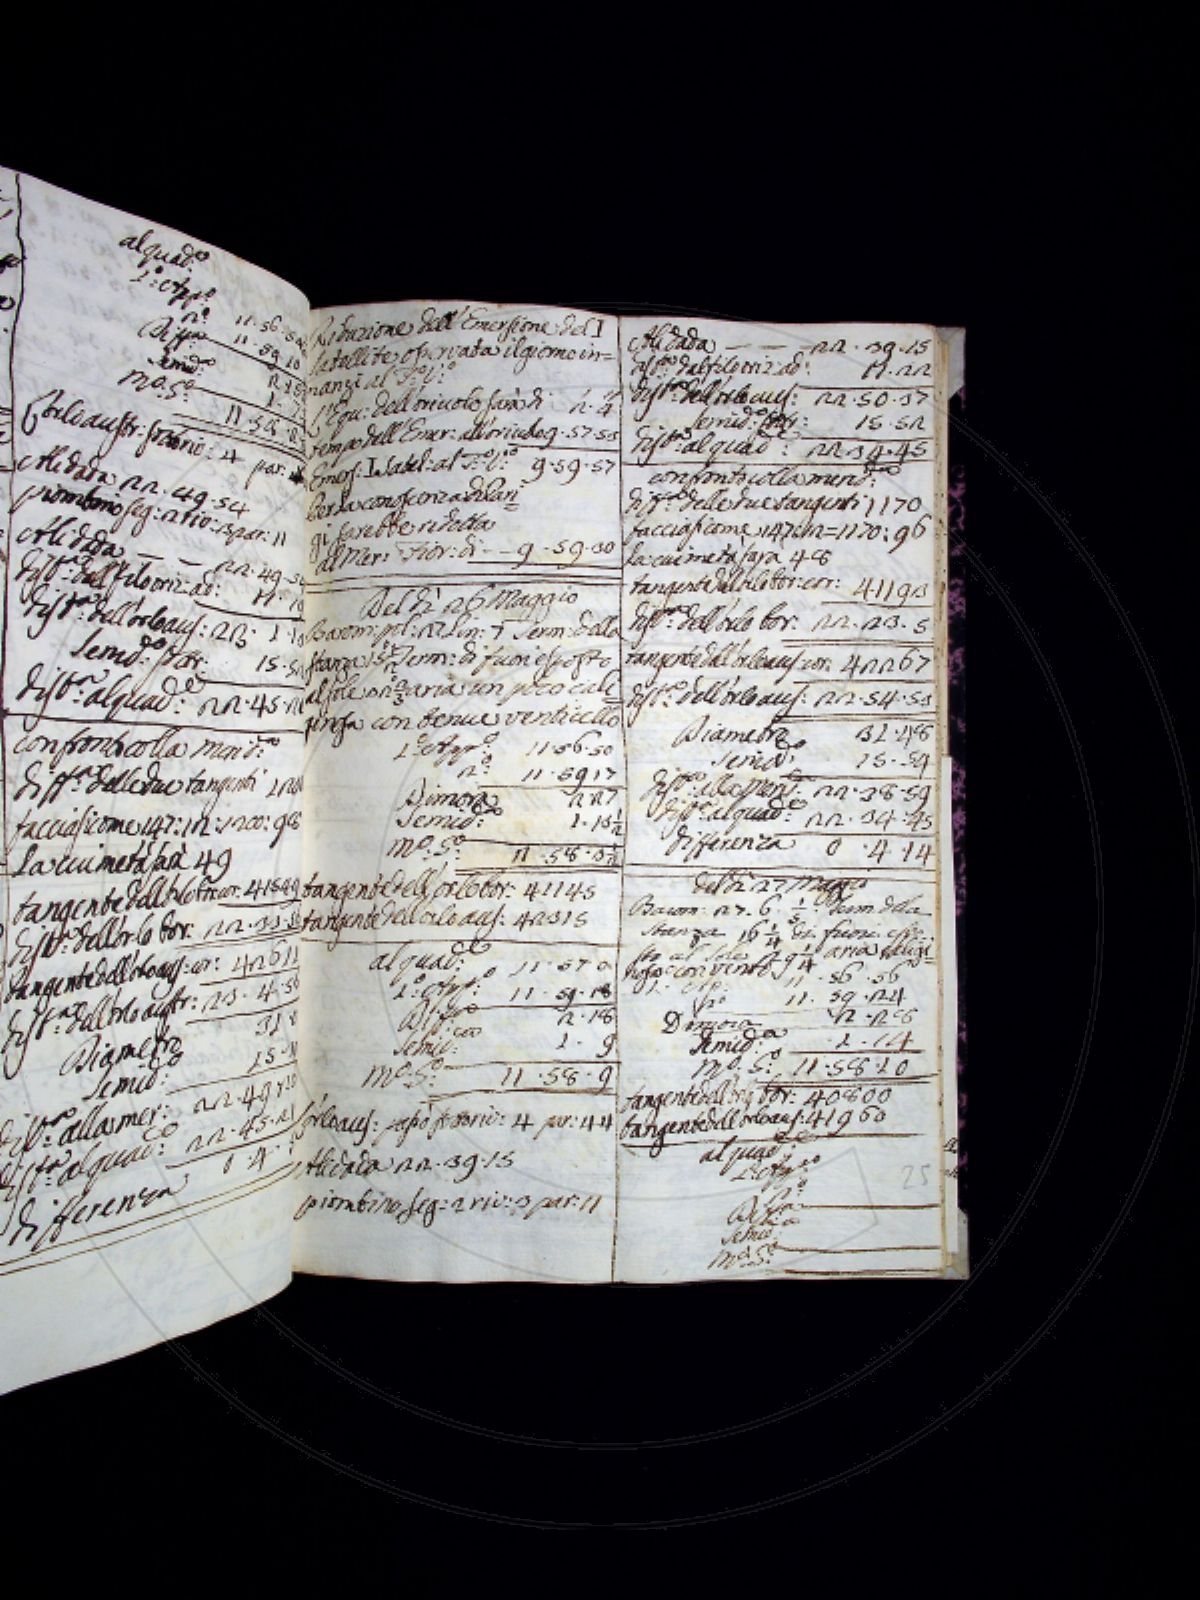 al quad:º
1.º App.º
nº 11.56.5
Diff.ª 11.59.10
Semid.º
M.º S.º 11.58.
Alidada 22.49.54
piombino seg: 2 rio: 3 par: 11
Alidada — — 22.49.5
dist.ª dal filo oriz: ad: 11.1
dist.ª dell'orlo aus: 23.1.1
Semid.º par: 15.5
dist.ª al quad:º 22.45.
confronto colla merid.ª
diff.ª delle due tangenti
facciasi come 147:12:1200:98
La cui metà sarà 49
tangente dell'orlo bor cor: 4154
dist.ª dell'orlo bor: 22.33.
tangente dell'orlo aus: cor: 4261
dist.ª dell'orlo austr: 23.4.5
Diametro 31.
Semid.º 15.
dist.ª alla mer: 22.49
dist.ª al quad:º 22.45.
differenza 0.4.
Riduzione dell'Emersione del I
Satellite osservata il giorno in=
nanzi al T.º V.º
L'Equ: dell'oriuolo sarà di 2.4
tempo dell'Emer: all'oriuolo 9.57.53
Emers: I Satel: al T.º V.º 9.59.57
Per la conoscenza di Pari=
gi sarebbe ridotta
al Mer: Fior: di — 9.59.30
Del dì 26 Maggio
Barom: pol: 27 lin: 7 Term: della
stanza 15 Term: di fuori esposto
al sole 22 2/3 aria un poco cali=
ginosa con tenue venticello
1.º App.º 11.56.50
2.º 11.59.17
Dimora 2.27
Semid.º 1.13 1/2
M.º S.º 11.58.3 1/2
tangente dell'orlo bor: 41145
tangente dell'orlo aus: 42315
al quad:º
1.º App.º 11.57.0
11.59.18
Diff.ª 2.18
Semid: 1.9
M.º S.º 11.58.9
orlo aus: passò per rio: 4 par: 44
Alidada 22.39.15
piombino seg: 2 rio: 3 par: 11
Alidada — — 22.39.15
dist.ª dal filo oriz: ad: 11.22
dist.ª dell'orlo aus: 22.50.37
Semid.º par: 15.52
dist.ª al quad:º 22.34.45
confronto colla merid.ª
diff.ª delle due tangenti 1170
facciasi come 147:12=1170:96
La cui metà sarà 48
tangente dell'orlo bor: cor: 41193
dist.ª dell'orlo bor: 22.23.5
tangente dell'orlo aus: cor: 42267
dist.ª dell'orlo aus: 22.54.53
Diametro 31.48
Semid.º 15.54
dist.ª alla merid: 22.38.59
dist.ª al quad:º 22.34.45
differenza 0.4.14
del dì 27 Maggio
Barom: 27.6. 1/3 Term. della
stanza 16 1/4 di fuori espo=
sto al sole 29 1/4 aria caligi=
nosa con vento
1.º App: 11.56.56
2.º 11.59.24
Dimora 2.28
Semid.º 1.14
M.º S.º 11.58.10
tangente dell'orlo bor: 40800
tangente dell'orlo aus: 41960
al quad:º
1.º App.º
2.º
Diff.ª
Semid.º
M.º S.º
25